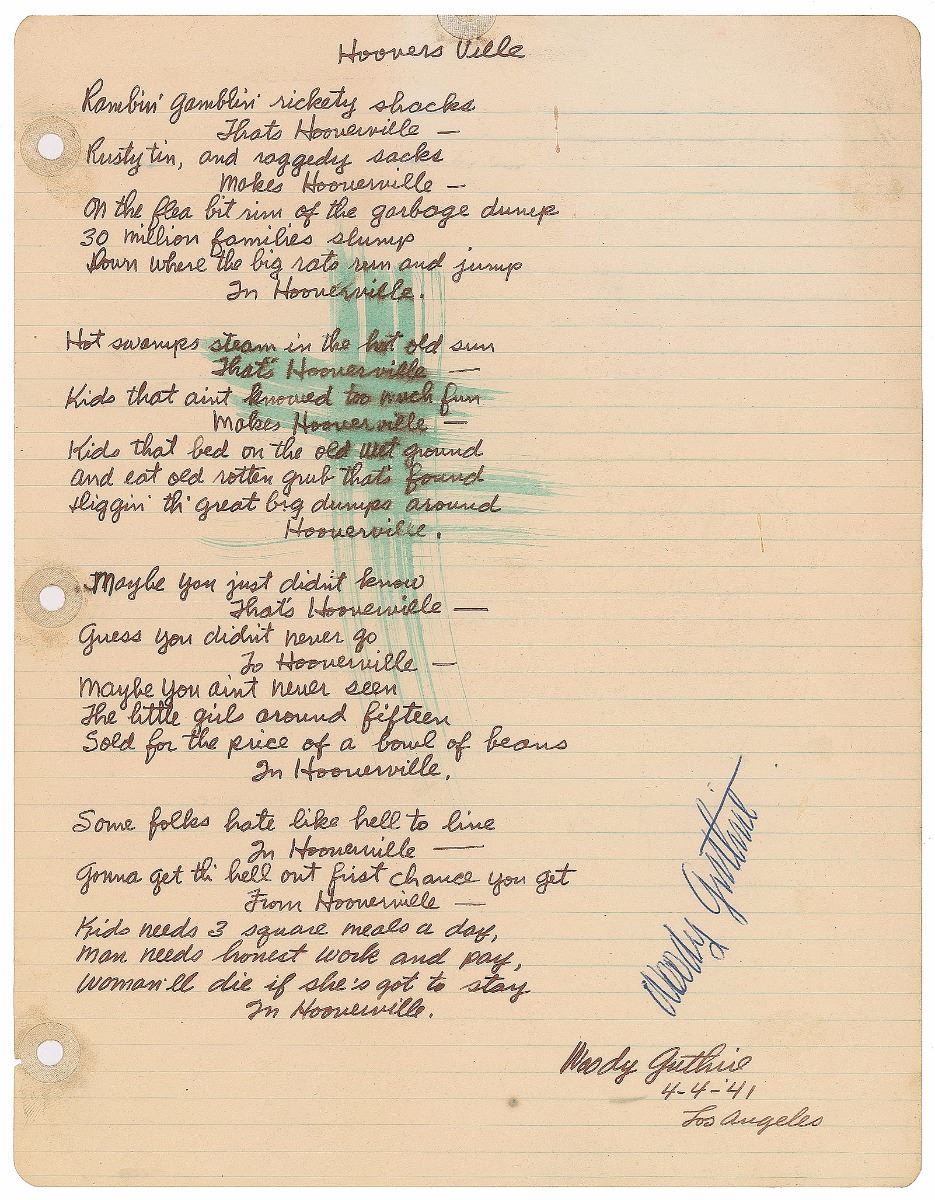 Hoovers Ville
Ramblin' gamblin' rickety shacks
Thats Hooverville —
Rusty tin, and raggedy sacks
Makes Hooverville —
On the flea bit rim of the garbage dump
30 million families slump
Down where the big rats run and jump
In Hooverville.
Hot swamps steam in the hot old sun
That's Hooverville —
Kids that aint knowed too much fun
Makes Hooverville —
Kids that bed on the old wet ground
and eat old rotten grub that's found
Diggin' th' great big dumps around
Hooverville.
Maybe you just didn't know
That's Hooverville —
Guess you didn't never go
To Hooverville —
Maybe you ain't never seen
The little girls around fifteen
Sold for the price of a bowl of beans
In Hooverville.
Some folks hate like hell to live
In Hooverville —
Gonna get th' hell out first chance you get
From Hooverville —
Kids needs 3 square meals a day,
Man needs honest work and pay,
Woman'll die if she's got to stay
In Hooverville.
Woody Guthrie
Woody Guthrie
4-4-'41
Los Angeles